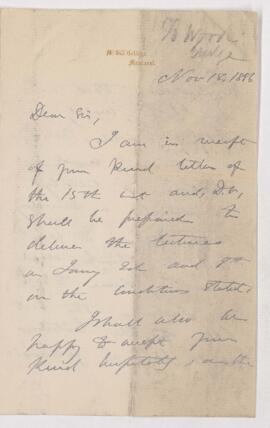 McGill College,
Montreal.
Nov 18, 1896
Dear Sir,
I am in receipt
of your kind letter of
the 15th and, D.V.,
shall be prepared to
deliver the lectures
on and
on the conditions stated.
I shall also be
happy to accept your
kind hospitality, on the